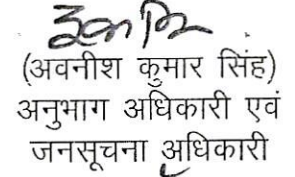 (अवनीश कुमार सिंह)
अनुभाग अधिकारी एवं
जनसूचना अधिकारी